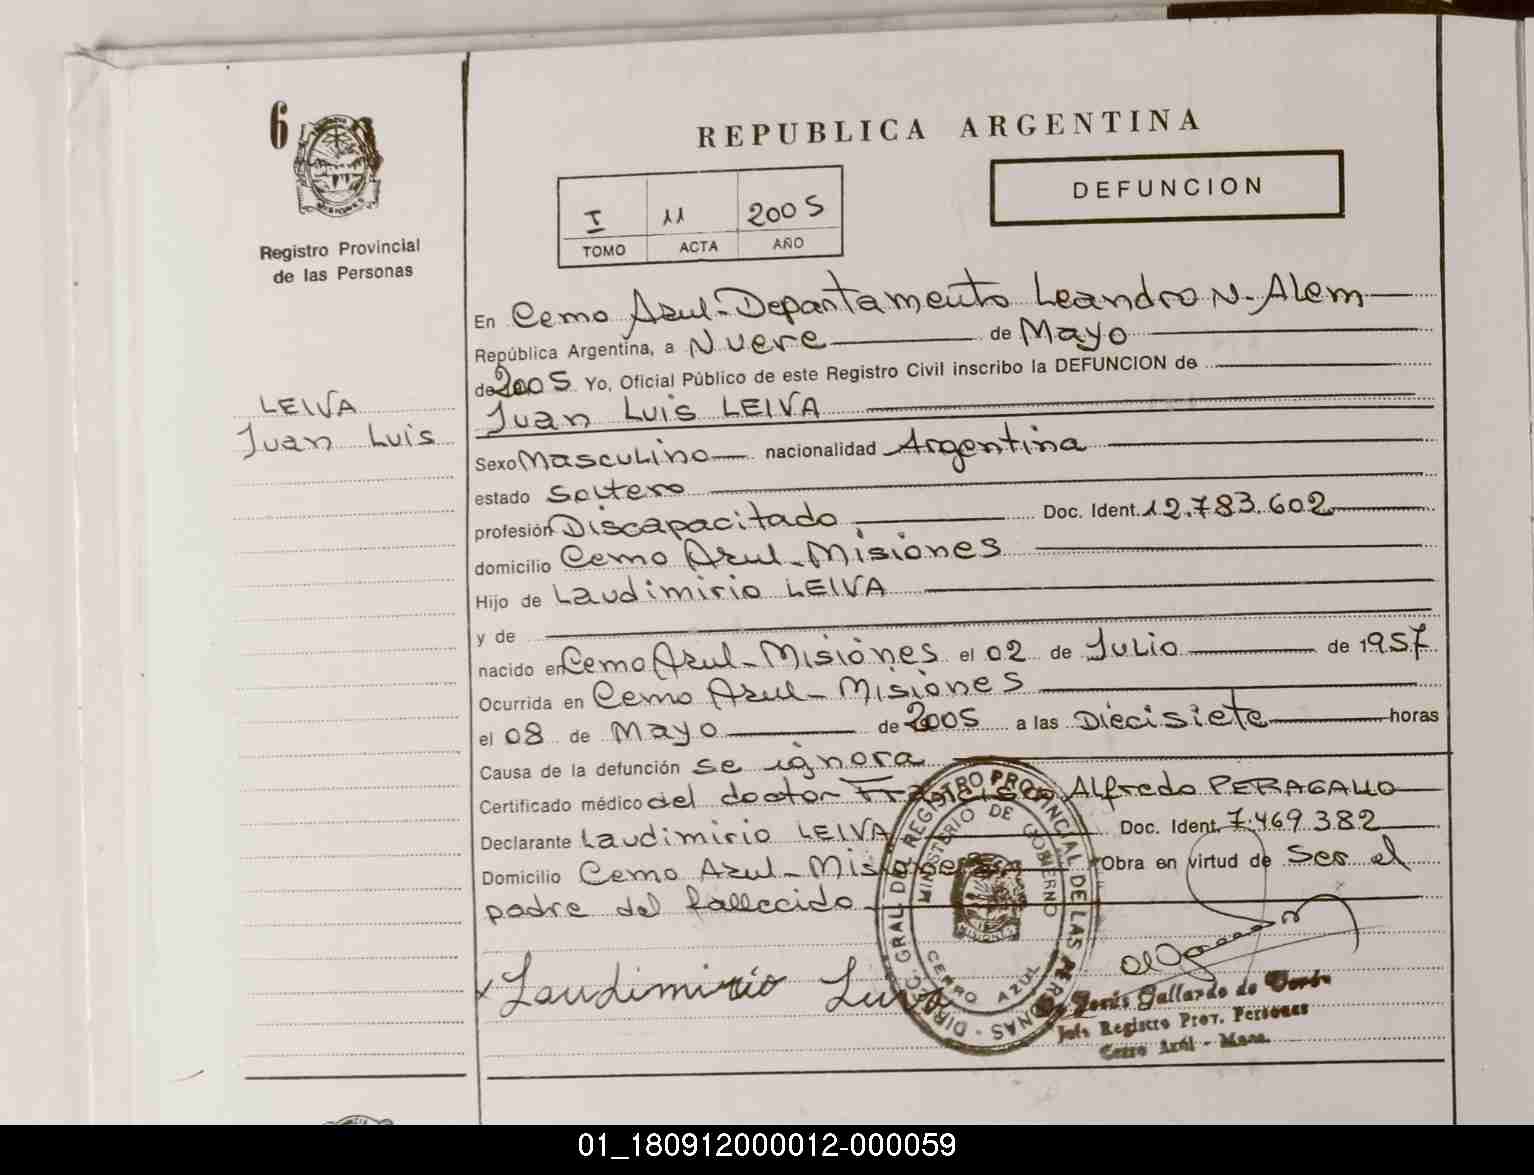 6
Registro Provincial
de las Personas
LEIVA
Juan Luis
REPUBLICA ARGENTINA
DEFUNCION
I 11 2005
TOMO ACTA AÑO
En Cerro Azul-Departamento Leandro N-Alem
República Argentina, a Nueve de Mayo
de 2005 Yo, Oficial Público de este Registro Civil inscribo la DEFUNCION de
Juan Luis LEIVA
Sexo Masculino nacionalidad Argentina
estado Soltero
profesión Discapacitado Doc. Ident. 12.783.602
domicilio Cerro Azul-Misiones
Hijo de Laudimirio LEIVA
y de
nacido en Cerro Azul-Misiones el 02 de Julio de 1957
Ocurrida en Cerro Azul-Misiones
el 08 de Mayo de 2005 a las Diecisiete horas
Causa de la defunción se ignora
Certificado médico del doctor Francisco Alfredo PERAGALLO
Declarante Laudimirio LEIVA Doc. Ident. 7.469.382
Domicilio Cerro Azul-Misiones Obra en virtud de Ser el
padre del fallecido
Laudimirio Leiva
DIREC. GRAL. DEL REGISTRO PROVINCIAL DE LAS PERSONAS
MINISTERIO DE GOBIERNO
CERRO AZUL
Jesús Gallardo de
Jefe Registro Prov. Personas
Cerro Azul - Mnes.
01_180912000012-000059